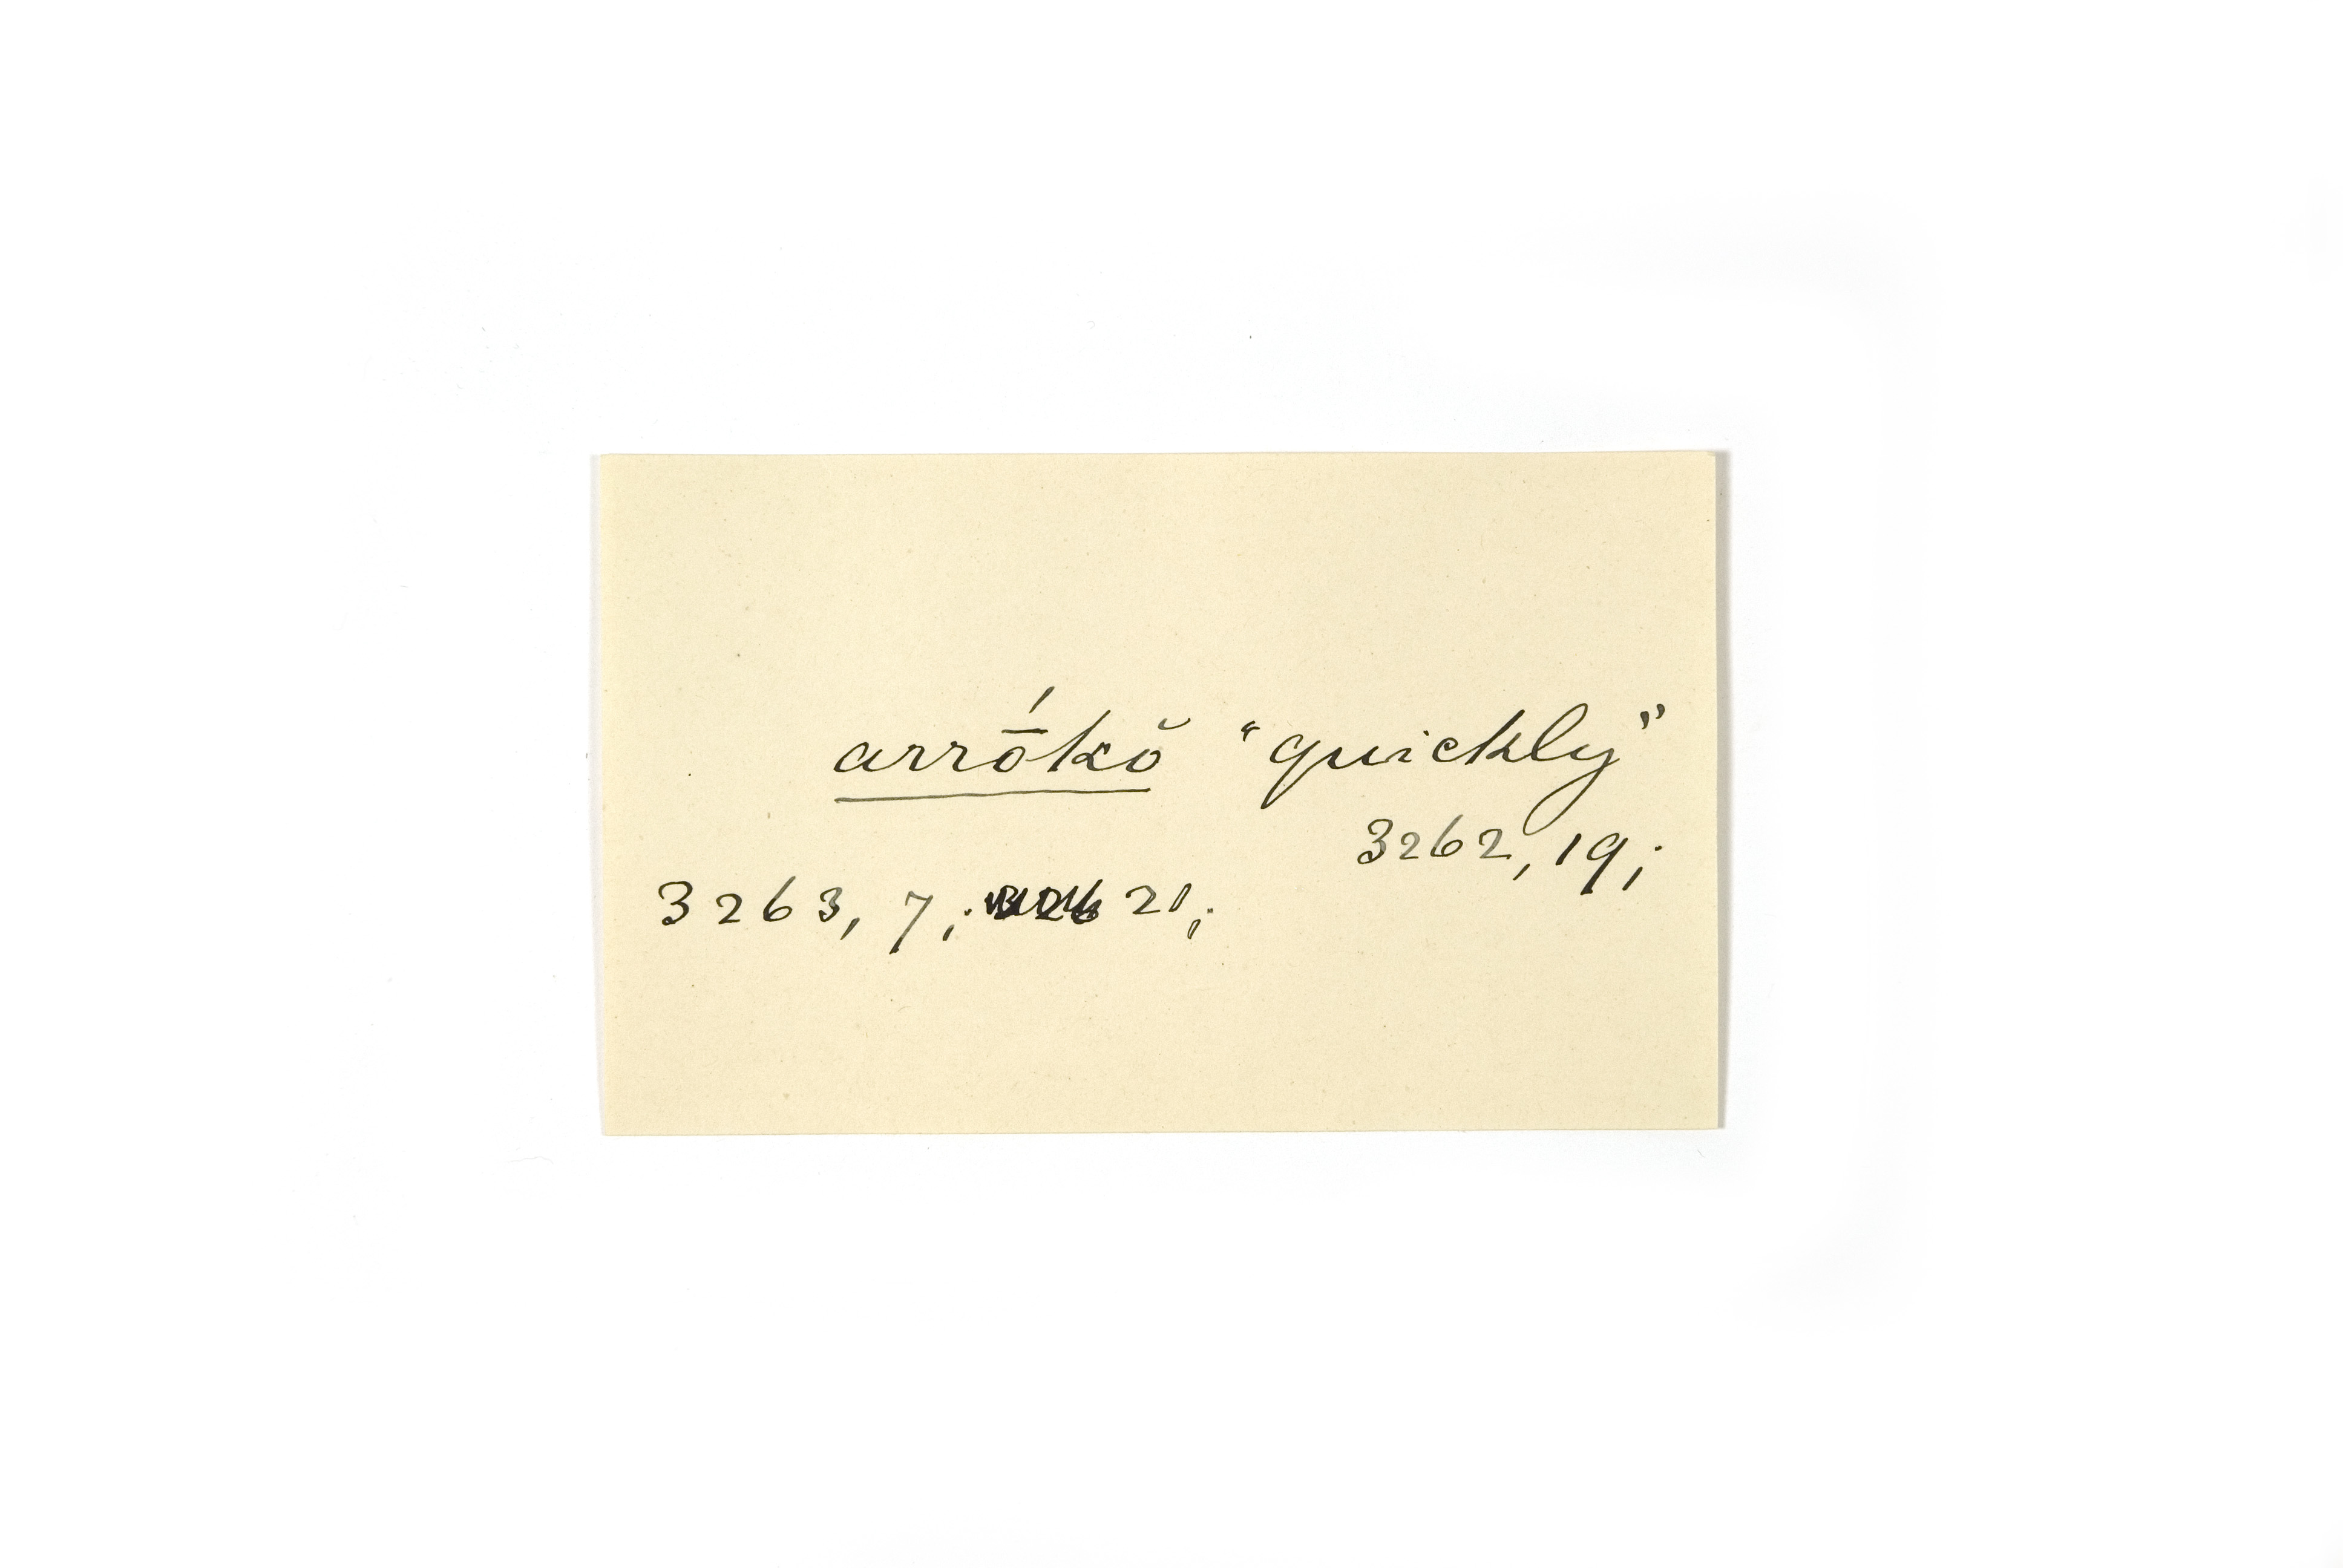 arrṓkŏ “quickly”
3262, 19;
3263, 7; 21;